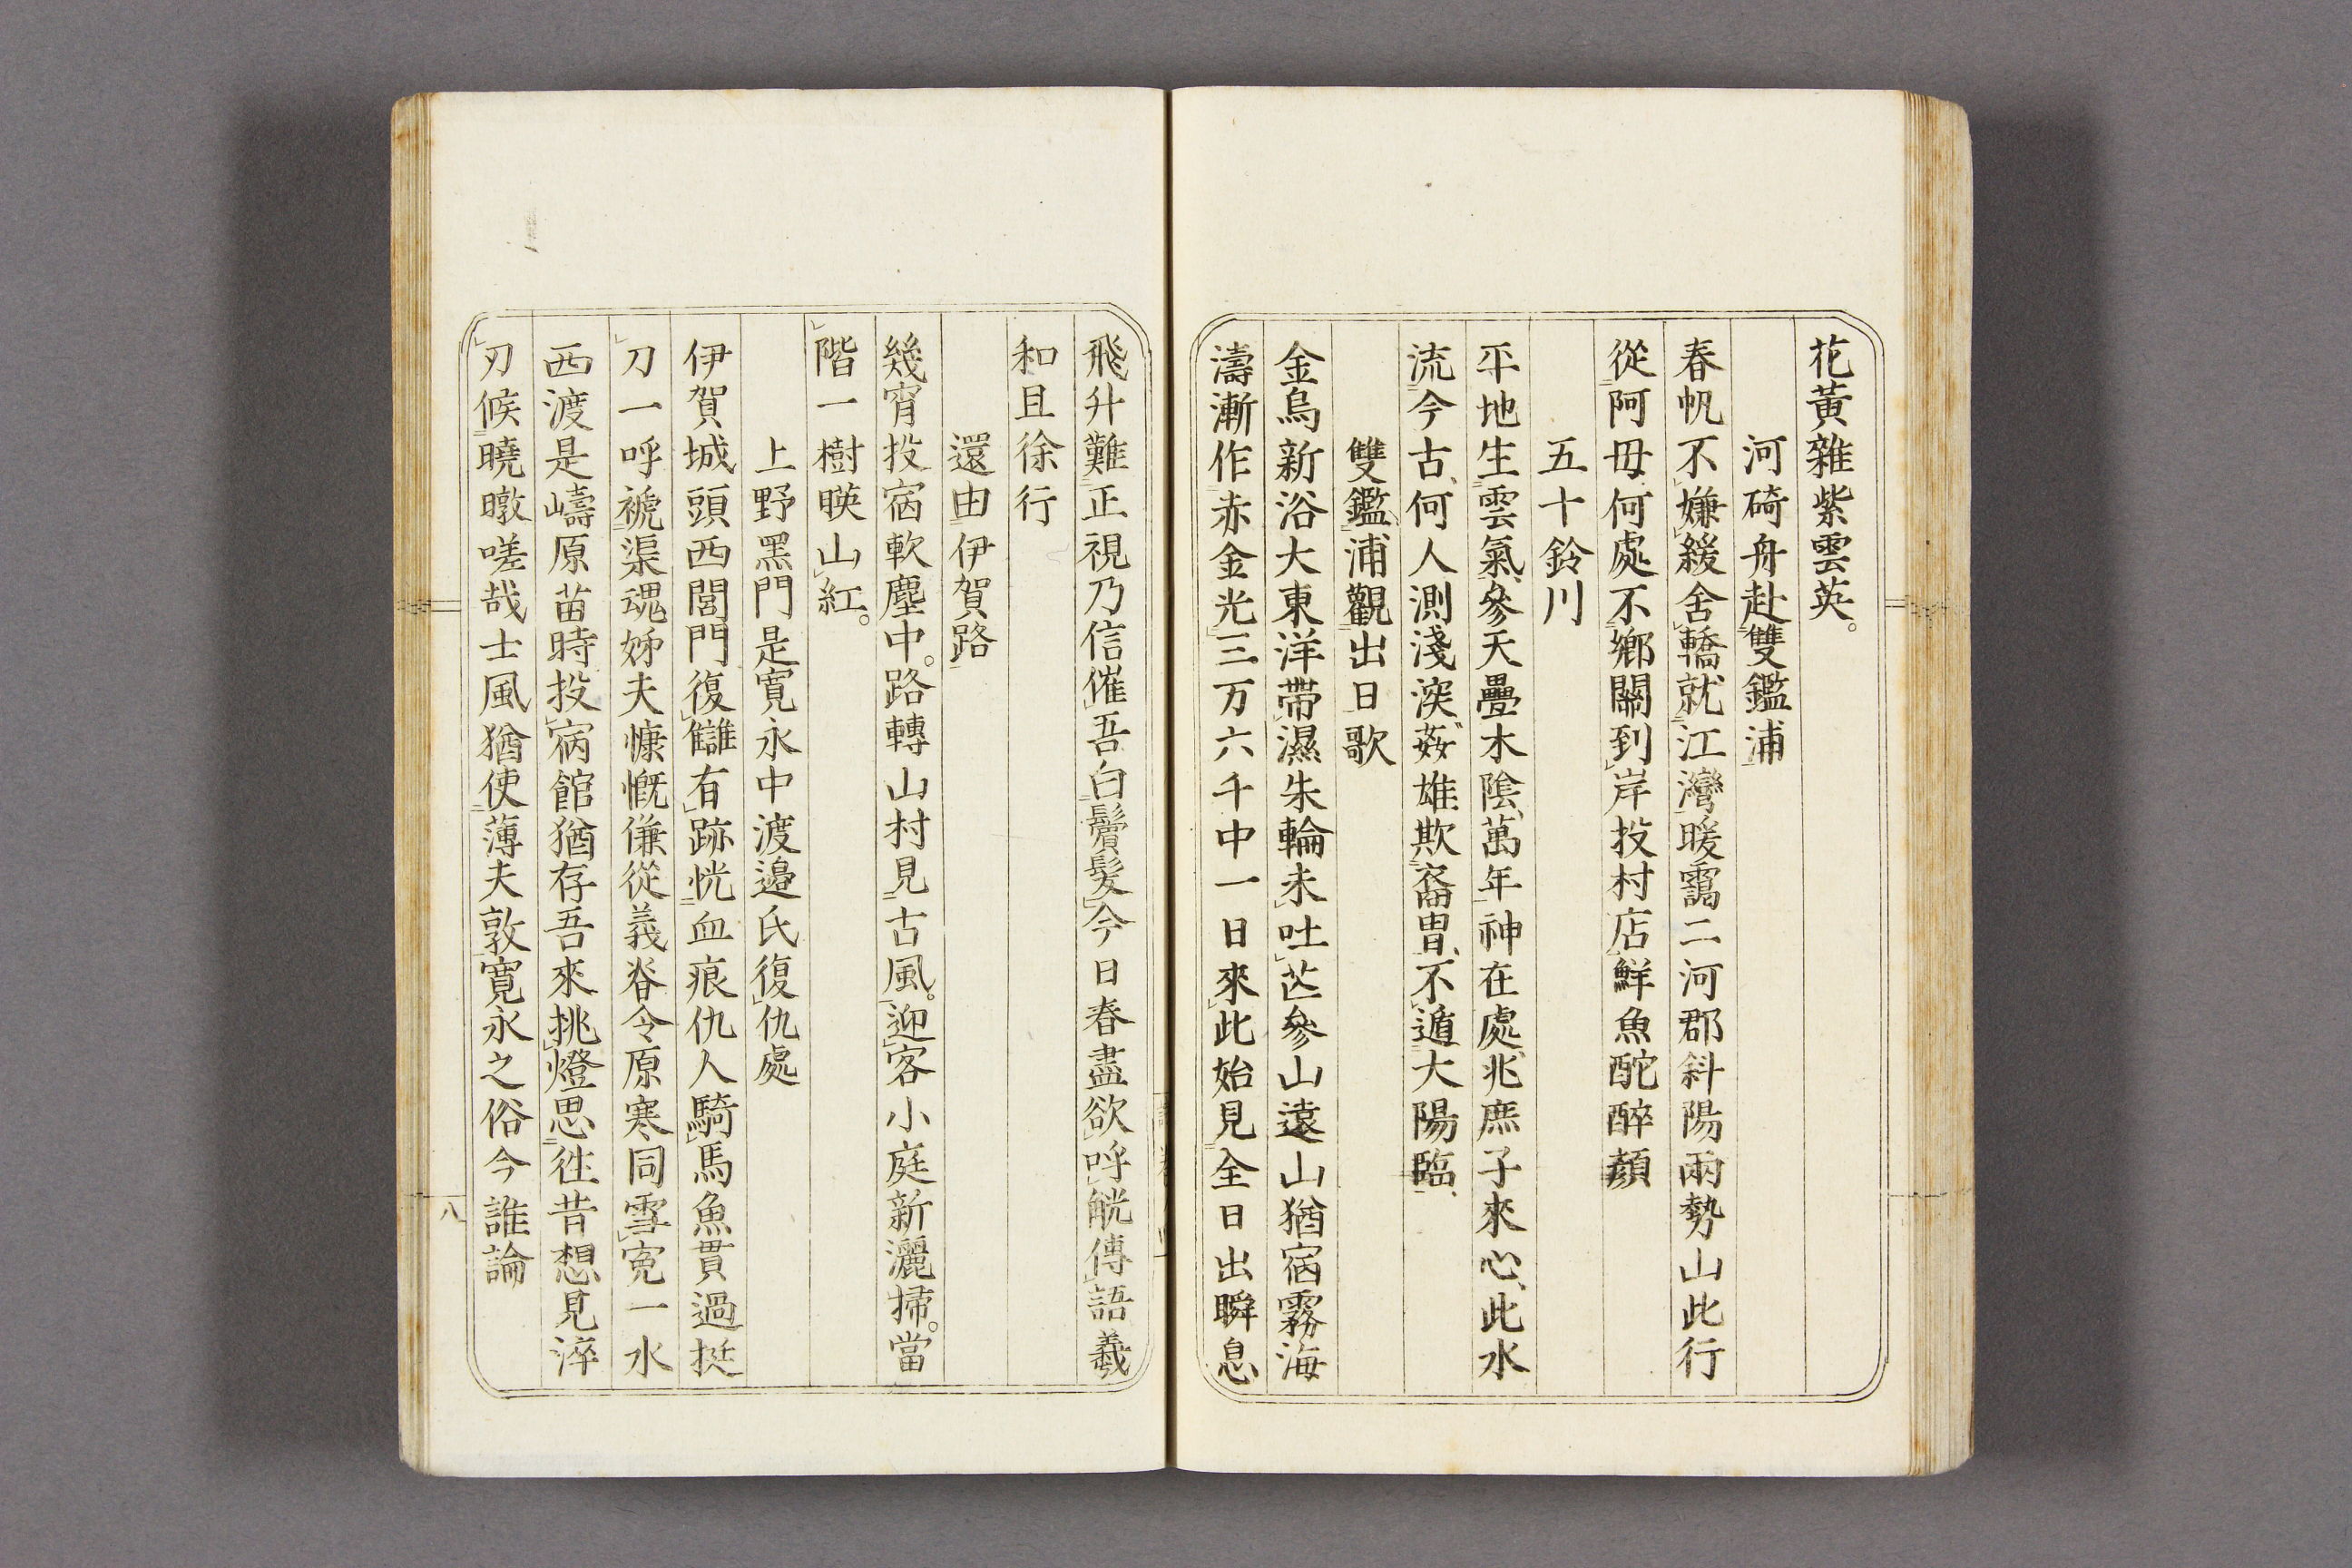 花黃雜紫雲英。
河碕舟赴雙鑑浦
春帆不嫌緩舍轎就江灣暖靄二河郡斜陽兩勢山此行
從阿毋何處不鄉關到岸投村店鮮魚酡醉顏
五十鈴川
平地生雲氣、參天疊木陰、萬年神在處、兆庶子來心、此水
流今古、何人測淺深、姦雄欺裔冑、不遁大陽臨、
雙鑑浦觀出日歌
金烏新浴大東洋帶濕朱輪未吐芒參山遠山猶宿霧海
濤漸作赤金光三万六千中一日來此始見全日出瞬息
飛升難正視乃信催吾白鬢髮今日春盡欲呼觥傳語羲
和且徐行
還由伊賀路
幾宵投宿軟塵中。路轉山村見古風。迎客小庭新灑掃。當
階一樹暎山紅。
上野黑門是寬永中渡邉氏復仇處
伊賀城頭西閭門復讎有跡恍血痕仇人騎馬魚貫過挺
刀一呼褫渠魂姊夫慷慨傔從義脊令原寒同雪寃一水
西渡是嶹原苗時投宿館猶存吾來挑燈思往昔想見淬
刃候曉暾嗟哉士風猶使薄夫敦寬永之俗今誰論
八